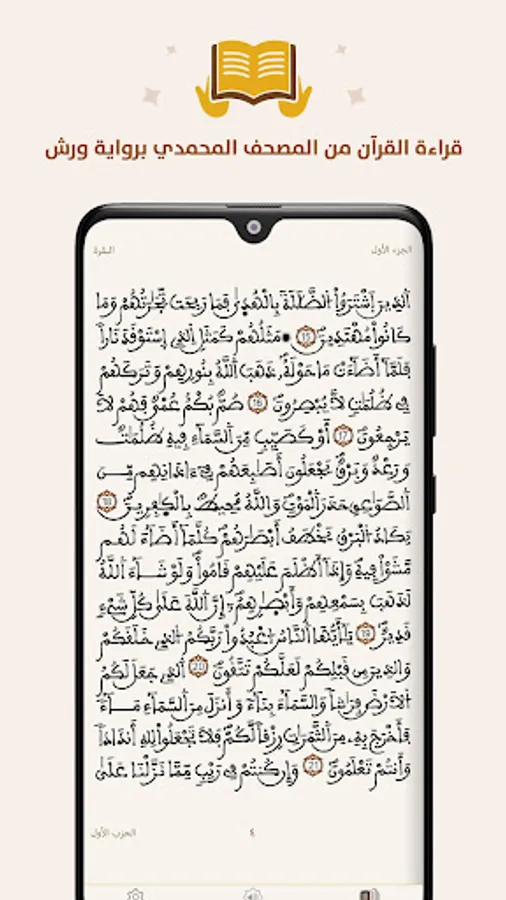 قراءة القرآن من المصحف المحمدي برواية ورش
الجزء الأول
البقرة
اَ۬لذِينَ اَ۪شْتَرَوُاْ اُ۬لضَّلَٰلَةَ بِالْهُد۪يٰ فَمَا رَبِحَت تِّجَٰرَتُهُمْ وَمَا
كَانُواْ مُهْتَدِينَۖ 15 ۞مَثَلُهُمْ كَمَثَلِ اِ۬لذِے اِ۪سْتَوْقَدَ نَاراٗ
فَلَمَّآ أَضَآءَتْ مَا حَوْلَهُۥ ذَهَبَ اَ۬للَّهُ بِنُورِهِمْ وَتَرَكَهُمْ
فِے ظُلُمَٰتٖ لَّا يُبْصِرُونَۖ 16 صُمُّۢ بُكْمٌ عُمْيٞ فَهُمْ لَا
يَرْجِعُونَۖ 17 أَوْ كَصَيِّبٖ مِّنَ اَ۬لسَّمَآءِ فِيهِ ظُلُمَٰتٞ
وَرَعْدٞ وَبَرْقٞ يَجْعَلُونَ أَصَٰبِعَهُمْ فِےٓ ءَاذَانِهِم مِّنَ
اَ۬لصَّوَٰعِقِ حَذَرَ اَ۬لْمَوْتِۖ وَاللَّهُ مُحِيطُۢ بِالْكٰ۪فِرِينَۖ 18
يَكَادُ اُ۬لْبَرْقُ يَخْطَفُ أَبْصَٰرَهُمْۖ كُلَّمَآ أَضَآءَ لَهُم
مَّشَوْاْ فِيهِۖ وَإِذَآ أَظْلَمَ عَلَيْهِمْ قَامُواْۖ وَلَوْ شَآءَ اَ۬للَّهُ
لَذَهَبَ بِسَمْعِهِمْ وَأَبْصٰ۪رِهِمُۥٓۖ إِنَّ اَ۬للَّهَ عَلَىٰ كُلِّ شَےْءٖ
قَدِيرٞۖ 19 يَٰٓأَيُّهَا اَ۬لنَّاسُ اُ۟عْبُدُواْ رَبَّكُمُ اُ۬لذِے خَلَقَكُمْ
وَالذِينَ مِن قَبْلِكُمْ لَعَلَّكُمْ تَتَّقُونَۖ 20 اَ۬لذِے جَعَلَ لَكُمُ
اُ۬لَارْضَ فِرَٰشاٗ وَالسَّمَآءَ بِنَآءٗ وَأَنزَلَ مِنَ اَ۬لسَّمَآءِ مَآءٗ
فَأَخْرَجَ بِهِۦ مِنَ اَ۬لثَّمَرَٰتِ رِزْقاٗ لَّكُمْۖ فَلَا تَجْعَلُواْ لِلهِ أَندَاداٗ
وَأَنتُمْ تَعْلَمُونَۖ 21 وَإِن كُنتُمْ فِے رَيْبٖ مِّمَّا نَزَّلْنَا عَلَىٰ
الحزب الأول
٤